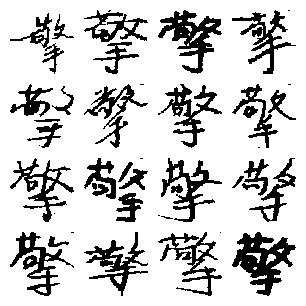 擎擎擎擎
擎擎擎擎
擎擎擎擎
擎擎擎擎